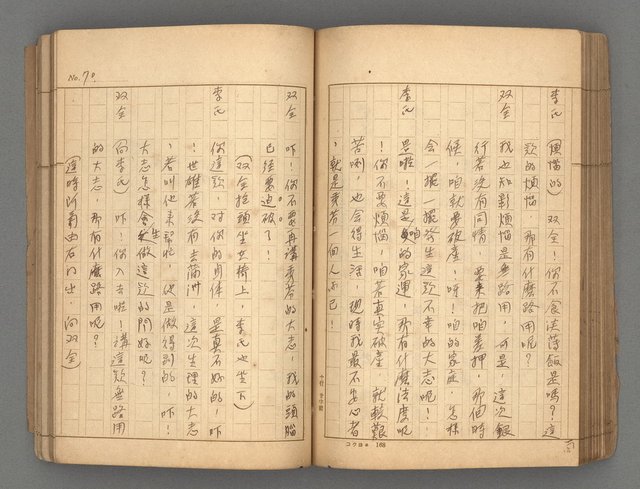 李氏 (煩惱的) 双全!你不食淡薄飯是嗎?這
款的煩惱,那有什麽路用呢?
双全 我也知影煩惱是無路用,可是這次銀
行若沒有同情,要來把咱差押,那個時
候,咱就要破產!呀!咱的家庭,怎樣
會一擺一擺發生這款不幸的大志呢!
李氏 是啦!這是咱的家運,那有什麽法度呢
!你不要煩惱,咱若真实破產,就較艱
苦咧,也会得生活,現時我最不安心者
,就是秀若一個人而已!
コクヨ 168
No. 70
双全 吓!你不要再講秀若的大志,我的頭腦
已経要迫破了!
(双全抱頭坐女椅上,李氏也坐下)
李氏 你這款,对你的身体,是真不好的,吓!
!世雄若沒有去滿洲,這次生理的大志
,若叫他來幫忙,也是做得到的,吓!
大志怎樣會生做這款的間好呢?
双全 (向李氏)吓!你入去啦!講這款無路用
的大志,那有什麽路用呢?
(這時阿菊由右门出,向双全)